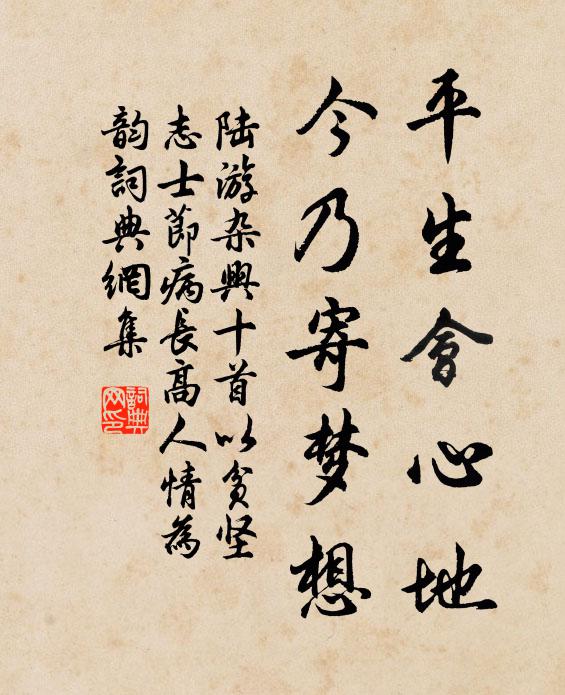 平生會心地
今乃寄梦想
陆游杂興十首以貧坚
志士節病長高人情為
韵詞典網集
詞典网印